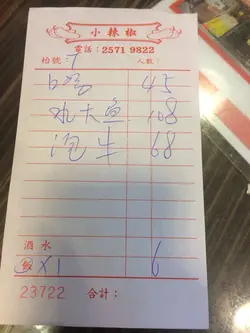 小辣椒
電話：2571 9822
枱號：7 人數：
45
水大鱼 108
泡生 68
酒水
X1 6
23722 合計：